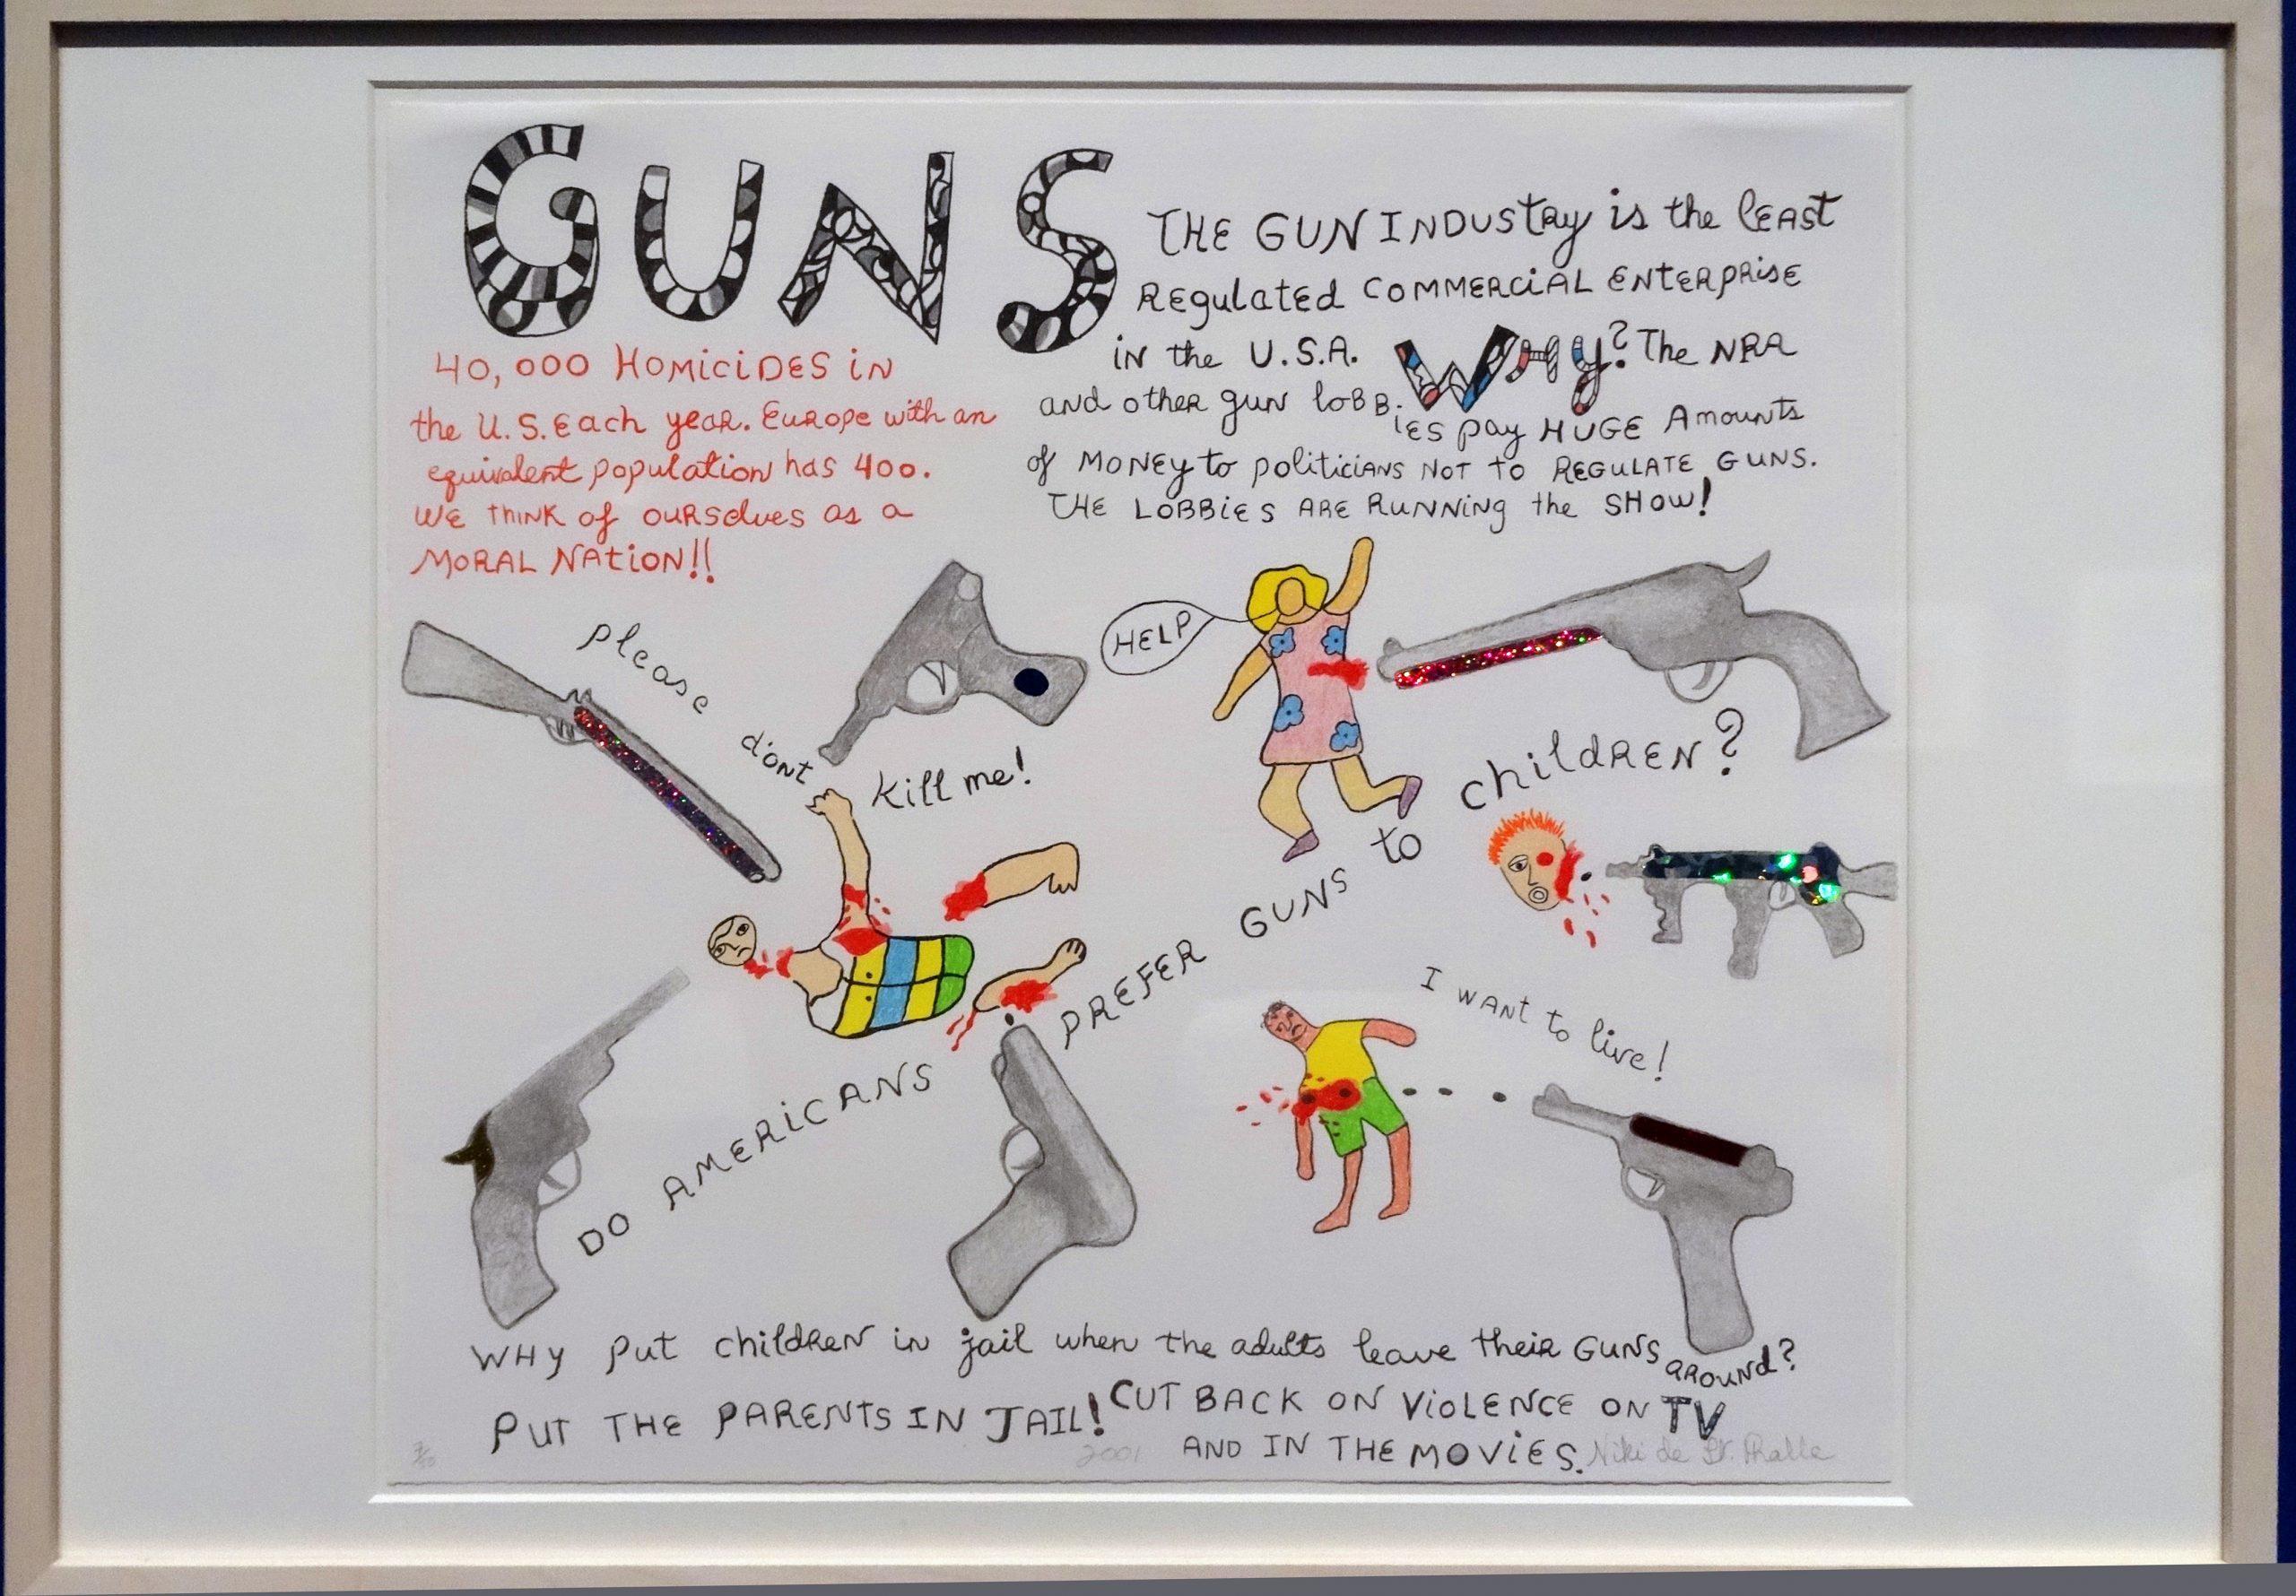 GUNS
40,000 HOMICIDES IN
the U.S. Each year. Europe with an
equivalent population has 400.
WE THINK of ourselves as a
MORAL NATION!!
THE GUN INDUSTRY is the LEAST
REgulated COMMERCIAL ENTERPRISE
IN the U.S.A. WHY? The NRA
and other gun lobbies pay HUGE Amounts
of MONEY to politicians NOT to REGULATE GUNS.
THE LOBBIES ARE RUNNING the SHOW!
please d'ont kill me!
HELP
DO AMERICANS PREFER GUNS to children?
I WANT to live!
WHY put children in jail when the adults leave their GUNS around?
PUT THE PARENTS IN JAIL!
CUT BACK ON VIOLENCE ON TV
AND IN THE MOVIES.
2001
Niki de St. Phalle